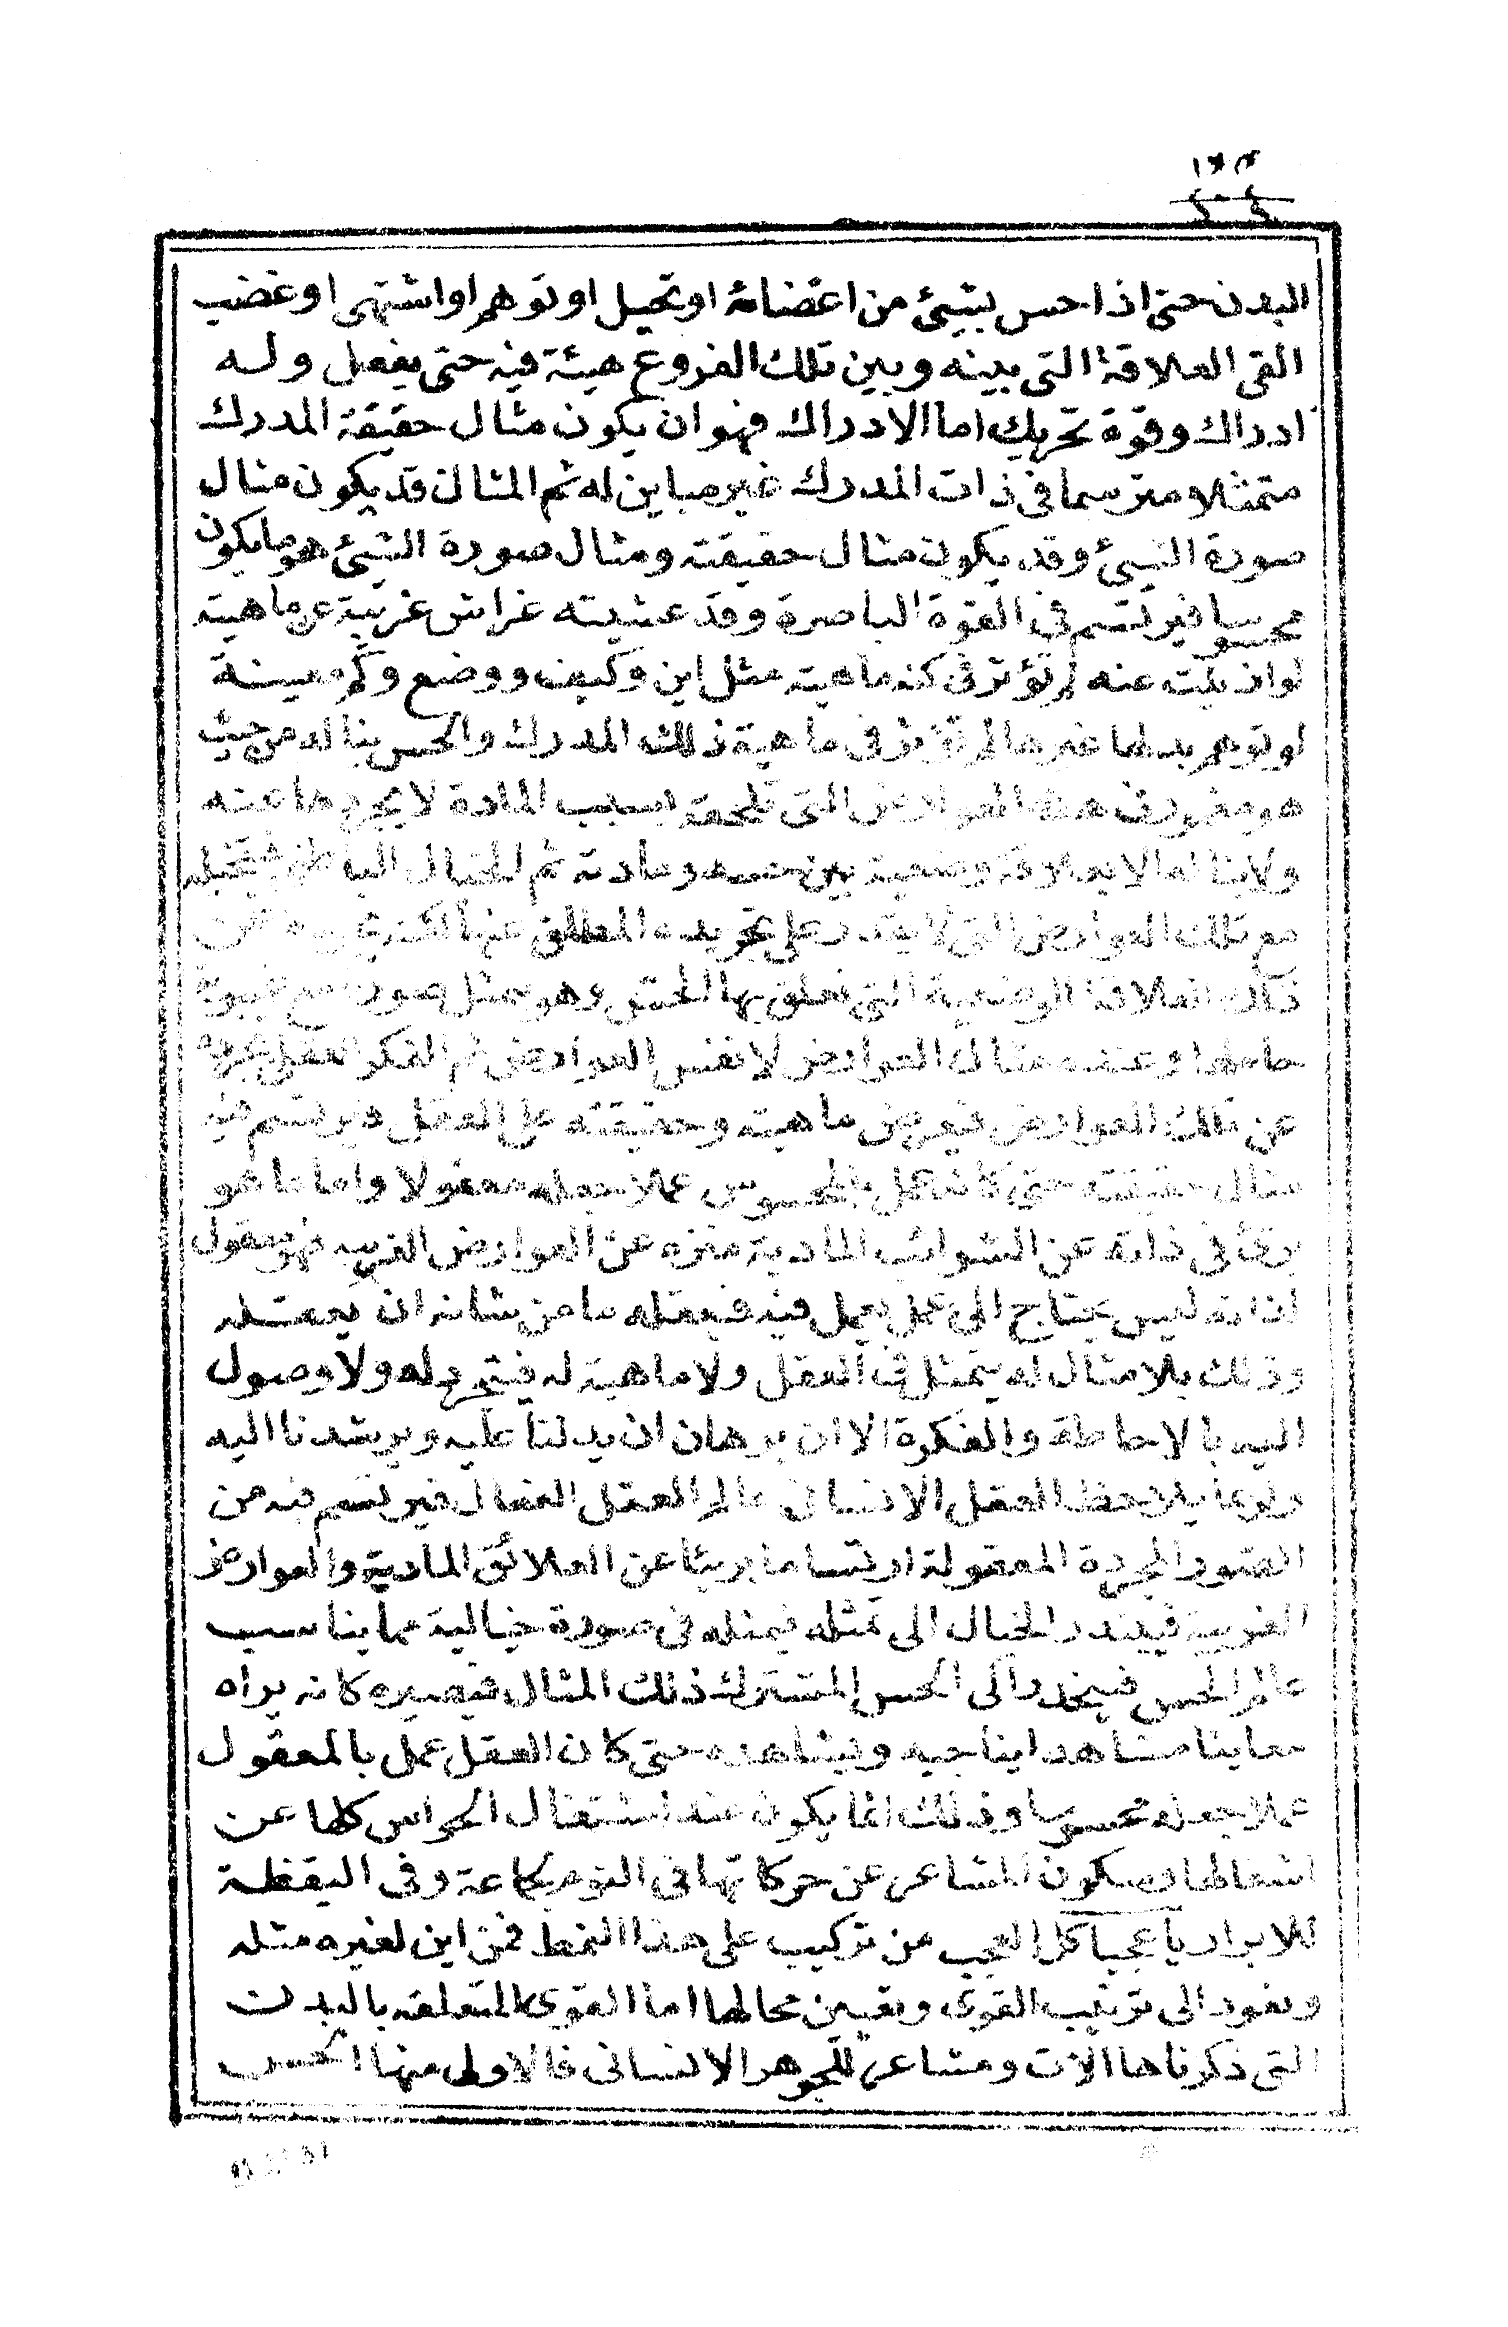 البدن حتى اذا احس بشيئ من اعضائه او تخيل او توهم او اشتهى او غضب
القى العلاقة التى بينه وبين تلك الفروع هيئة فيه حتى يفعل وله
ادراك وقوة تحريك اما الادراك فهو ان يكون مثال حقيقة المدرك
متمثلا مترسما فى ذات المدرك غير مباين له ثم المثال قد يكون مثال
صورة الشيئ وقد يكون مثال حقيقته ومثال صورة الشيئ هو ما يكون
محسوسا فيرتسم فى القوة الباصرة وقد غشيته غواش غريبة عن ماهيته
لو ازيلت عنه لم تؤثر فى كنه ماهيته مثل اين وكيف ووضع وكم معينة
لو توهم بدلها غيرها لم تؤثر فى ماهية ذلك المدرك والحس يناله من حيث
هو مغمور فى هذه العوارض التى تلحقه بسبب المادة لا يجردها عنه
ولا يناله الا بعلاقة وضعية بين حسه ومادته ثم للخيال الباطن فيتخيله
مع تلك العوارض التى لا يقدر على تجريده المطلق عنها لكنه يجرده عن
تلك العلاقة الوضعية التى تعلق بها الحس وهو يتمثل صورته مع غيبوبة
حاملها وعنده مثال العوارض لا نفس العوارض ثم الفكر العقلى يجرده
عن تلك العوارض فيعرض ماهيته وحقيقته على العقل فيرتسم فيه
مثال حقيقته حتى كانه عمل بالمحسوس عملا جعله معقولا واما ما هو
برئ فى ذاته عن الشوائب المادية منزه عن العوارض الغريبه فهو معقول
لذاته ليس يحتاج الى عمل يعمل فيه فيعقله ما من شانه ان يعقله
وذلك بلا مثال له يتمثل فى العقل ولا ماهية له فيتجرد له ولا وصول
اليه بالاحاطة والفكرة الا ان برهان ان يدلنا عليه ويرشدنا اليه
ولربما يلاحظ العقل الانسانى عالم العقل الفعال فيرتسم فيه من
الصور المجردة المعقولة ارتساما بريئا عن العلائق المادية والعوارض
الغريبة فيبتدر الخيال الى تمثله فيمثله فى صورة خيالية مما يناسب
عالم الحس فينحدر الى الحس المشترك ذلك المثال فيصيره كانه يراه
معاينا مشاهدا يناجيه ويشاهده حتى كان العقل عمل بالمعقول
عملا جعله محسوسا وذلك انما يكون عند اشتغال الحواس كلها عن
اشغالها وسكون المشاعر عن حركاتها فى النوم لجماعة وفى اليقظة
للابرار يا عجبا كل العجب من تركيب على هذا النمط فمن اين لغيره مثله
ونعود الى ترتيب القوى وتعيين محالها اما القوى المتعلقه بالبدن
التى ذكرناها الات ومشاعر للجوهر الانسانى فالاولى منها الحس